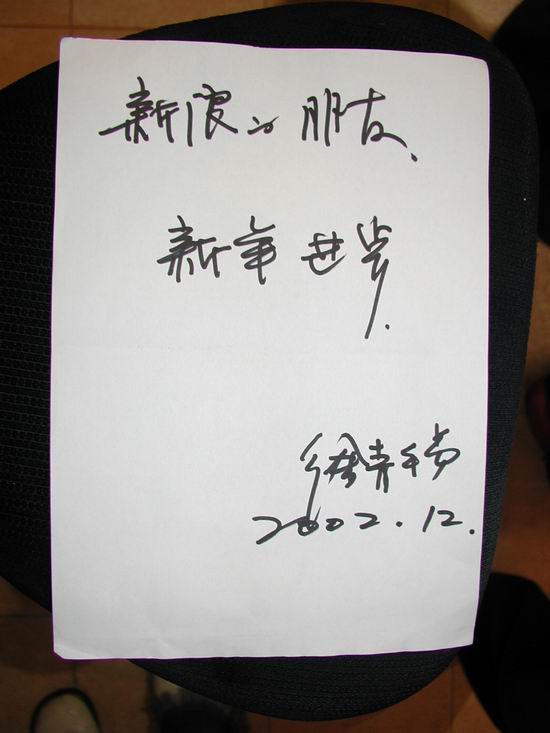 新浪的朋友、
新年进步.
2002.12.